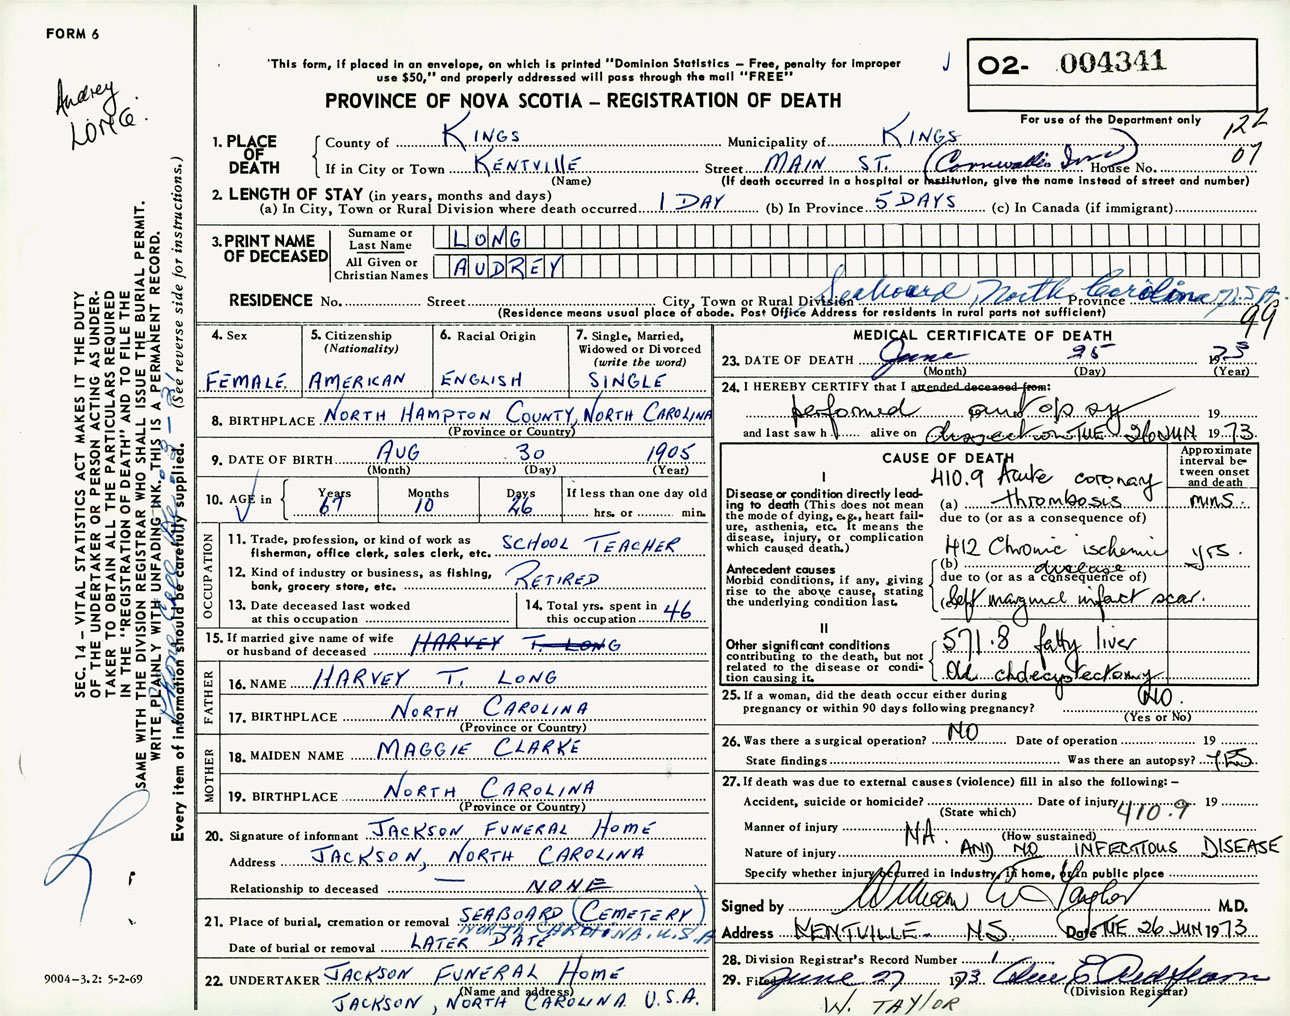 FORM 6
Audrey
LONG.
SEC. 14 – VITAL STATISTICS ACT MAKES IT THE DUTY
OF THE UNDERTAKER OR PERSON ACTING AS UNDER-
TAKER TO OBTAIN ALL THE PARTICULARS REQUIRED
IN THE "REGISTRATION OF DEATH" AND TO FILE THE
SAME WITH THE DIVISION REGISTRAR WHO SHALL ISSUE THE BURIAL PERMIT.
WRITE PLAINLY WITH UNFADING INK. THIS IS A PERMANENT RECORD.
Every item of information should be carefully supplied. (See reverse side for instructions.)
9004-3.2: 5-2-69
'This form, if placed in an envelope, on which is printed "Dominion Statistics – Free, penalty for improper
use $50," and properly addressed will pass through the mail "FREE"
PROVINCE OF NOVA SCOTIA – REGISTRATION OF DEATH
O2- 004341
For use of the Department only
122
07
1. PLACE OF DEATH
County of KINGS Municipality of KINGS
If in City or Town KENTVILLE Street MAIN ST. (Cornwallis Inn) House No.
(Name) (If death occurred in a hospital or institution, give the name instead of street and number)
2. LENGTH OF STAY (in years, months and days)
(a) In City, Town or Rural Division where death occurred 1 DAY (b) In Province 5 DAYS (c) In Canada (if immigrant)
3. PRINT NAME OF DECEASED
Surname or Last Name LONG
All Given or Christian Names AUDREY
RESIDENCE No. Street City, Town or Rural Division Seaboard, North Carolina Province U.S.A.
(Residence means usual place of abode. Post Office Address for residents in rural parts not sufficient)
99
4. Sex
FEMALE
5. Citizenship
(Nationality)
AMERICAN
6. Racial Origin
ENGLISH
7. Single, Married,
Widowed or Divorced
(write the word)
SINGLE
8. BIRTHPLACE NORTH HAMPTON COUNTY, NORTH CAROLINA
(Province or Country)
9. DATE OF BIRTH AUG 30 1905
(Month) (Day) (Year)
10. AGE in
Years Months Days If less than one day old
67 10 26 hrs. or min.
OCCUPATION
11. Trade, profession, or kind of work as
fisherman, office clerk, sales clerk, etc. SCHOOL TEACHER
12. Kind of industry or business, as fishing,
bank, grocery store, etc. RETIRED
13. Date deceased last worked
at this occupation
14. Total yrs. spent in
this occupation 46
15. If married give name of wife
or husband of deceased HARVEY T. LONG
FATHER
16. NAME HARVEY T. LONG
17. BIRTHPLACE NORTH CAROLINA
(Province or Country)
MOTHER
18. MAIDEN NAME MAGGIE CLARKE
19. BIRTHPLACE NORTH CAROLINA
(Province or Country)
20. Signature of informant JACKSON FUNERAL HOME
Address JACKSON, NORTH CAROLINA
Relationship to deceased NONE
21. Place of burial, cremation or removal SEABOARD (CEMETERY)
NORTH CAROLINA. U.S.A
Date of burial or removal LATER DATE
22. UNDERTAKER JACKSON FUNERAL HOME
(Name and address)
JACKSON, NORTH CAROLINA U.S.A.
MEDICAL CERTIFICATE OF DEATH
23. DATE OF DEATH June 25 1973
(Month) (Day) (Year)
24. I HEREBY CERTIFY that I attended deceased from:
performed autopsy 19
and last saw h alive on dissection TUE 26 JUN 1973
CAUSE OF DEATH
Approximate
interval be-
tween onset
and death
I
Disease or condition directly lead-
ing to death (This does not mean
the mode of dying, e.g., heart fail-
ure, asthenia, etc. It means the
disease, injury, or complication
which caused death.)
410.9 Acute coronary
(a) thrombosis mins.
due to (or as a consequence of)
Antecedent causes
Morbid conditions, if any, giving
rise to the above cause, stating
the underlying condition last.
412 Chronic ischemic yrs.
(b) disease
due to (or as a consequence of)
(c) left marginal infarct scar.
II
Other significant conditions
contributing to the death, but not
related to the disease or condi-
tion causing it.
571.8 fatty liver
Old cholecystectomy
25. If a woman, did the death occur either during
pregnancy or within 90 days following pregnancy? NO.
(Yes or No)
26. Was there a surgical operation? NO Date of operation 19
State findings Was there an autopsy? YES
27. If death was due to external causes (violence) fill in also the following: –
Accident, suicide or homicide? Date of injury 19
(State which) 410.9
Manner of injury NA.
(How sustained)
Nature of injury AND NO INFECTIOUS DISEASE
Specify whether injury occurred in Industry, in home, or in public place
Signed by William C. Taylor M.D.
Address KENTVILLE NS Date TUE 26 JUN 1973
28. Division Registrar's Record Number 1
29. Filed June 27 1973
(Division Registrar)
W. TAYLOR